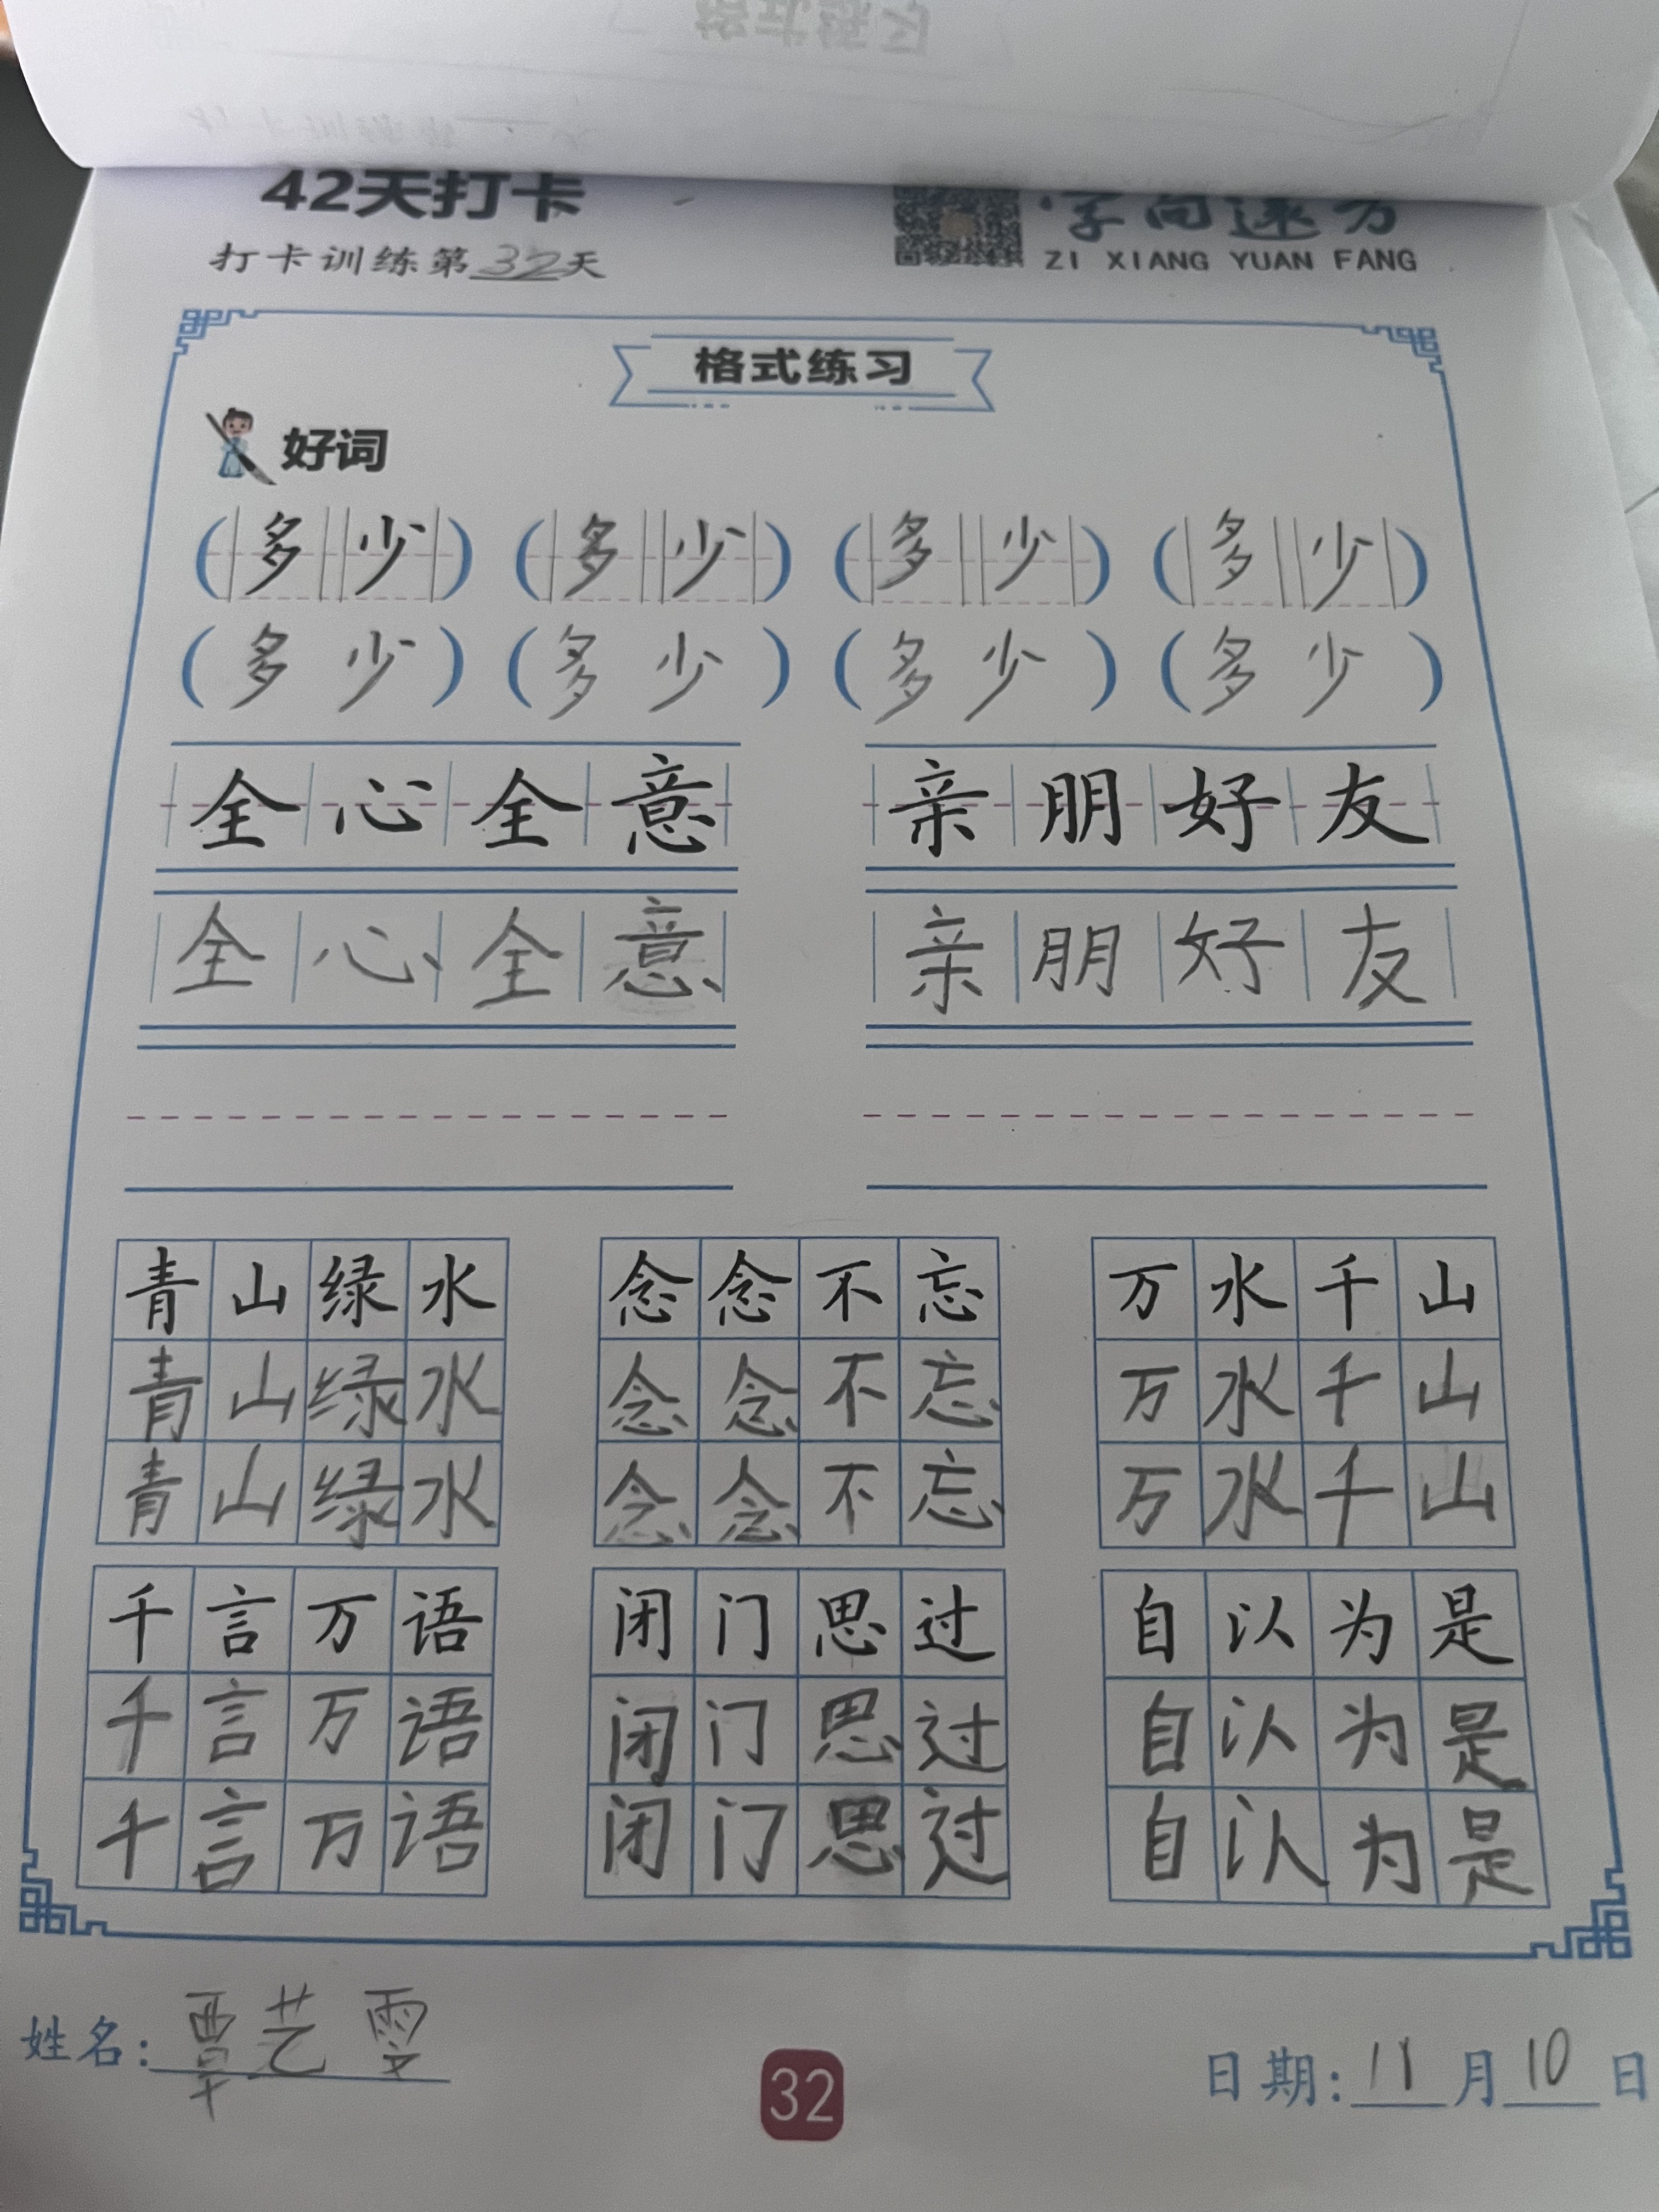 42天打卡
字向远方
打卡训练第32天
ZI XIANG YUAN FANG
格式练习
好词
(多少) (多少) (多少) (多少)
(多少) (多少) (多少) (多少)
全心全意 亲朋好友
全心全意 亲朋好友
青山绿水 念念不忘 万水千山
青山绿水 念念不忘 万水千山
青山绿水 念念不忘 万水千山
千言万语 闭门思过 自以为是
千言万语 闭门思过 自认为是
千言万语 闭门思过 自认为是
姓名:覃艺雯
32
日期:11月10日